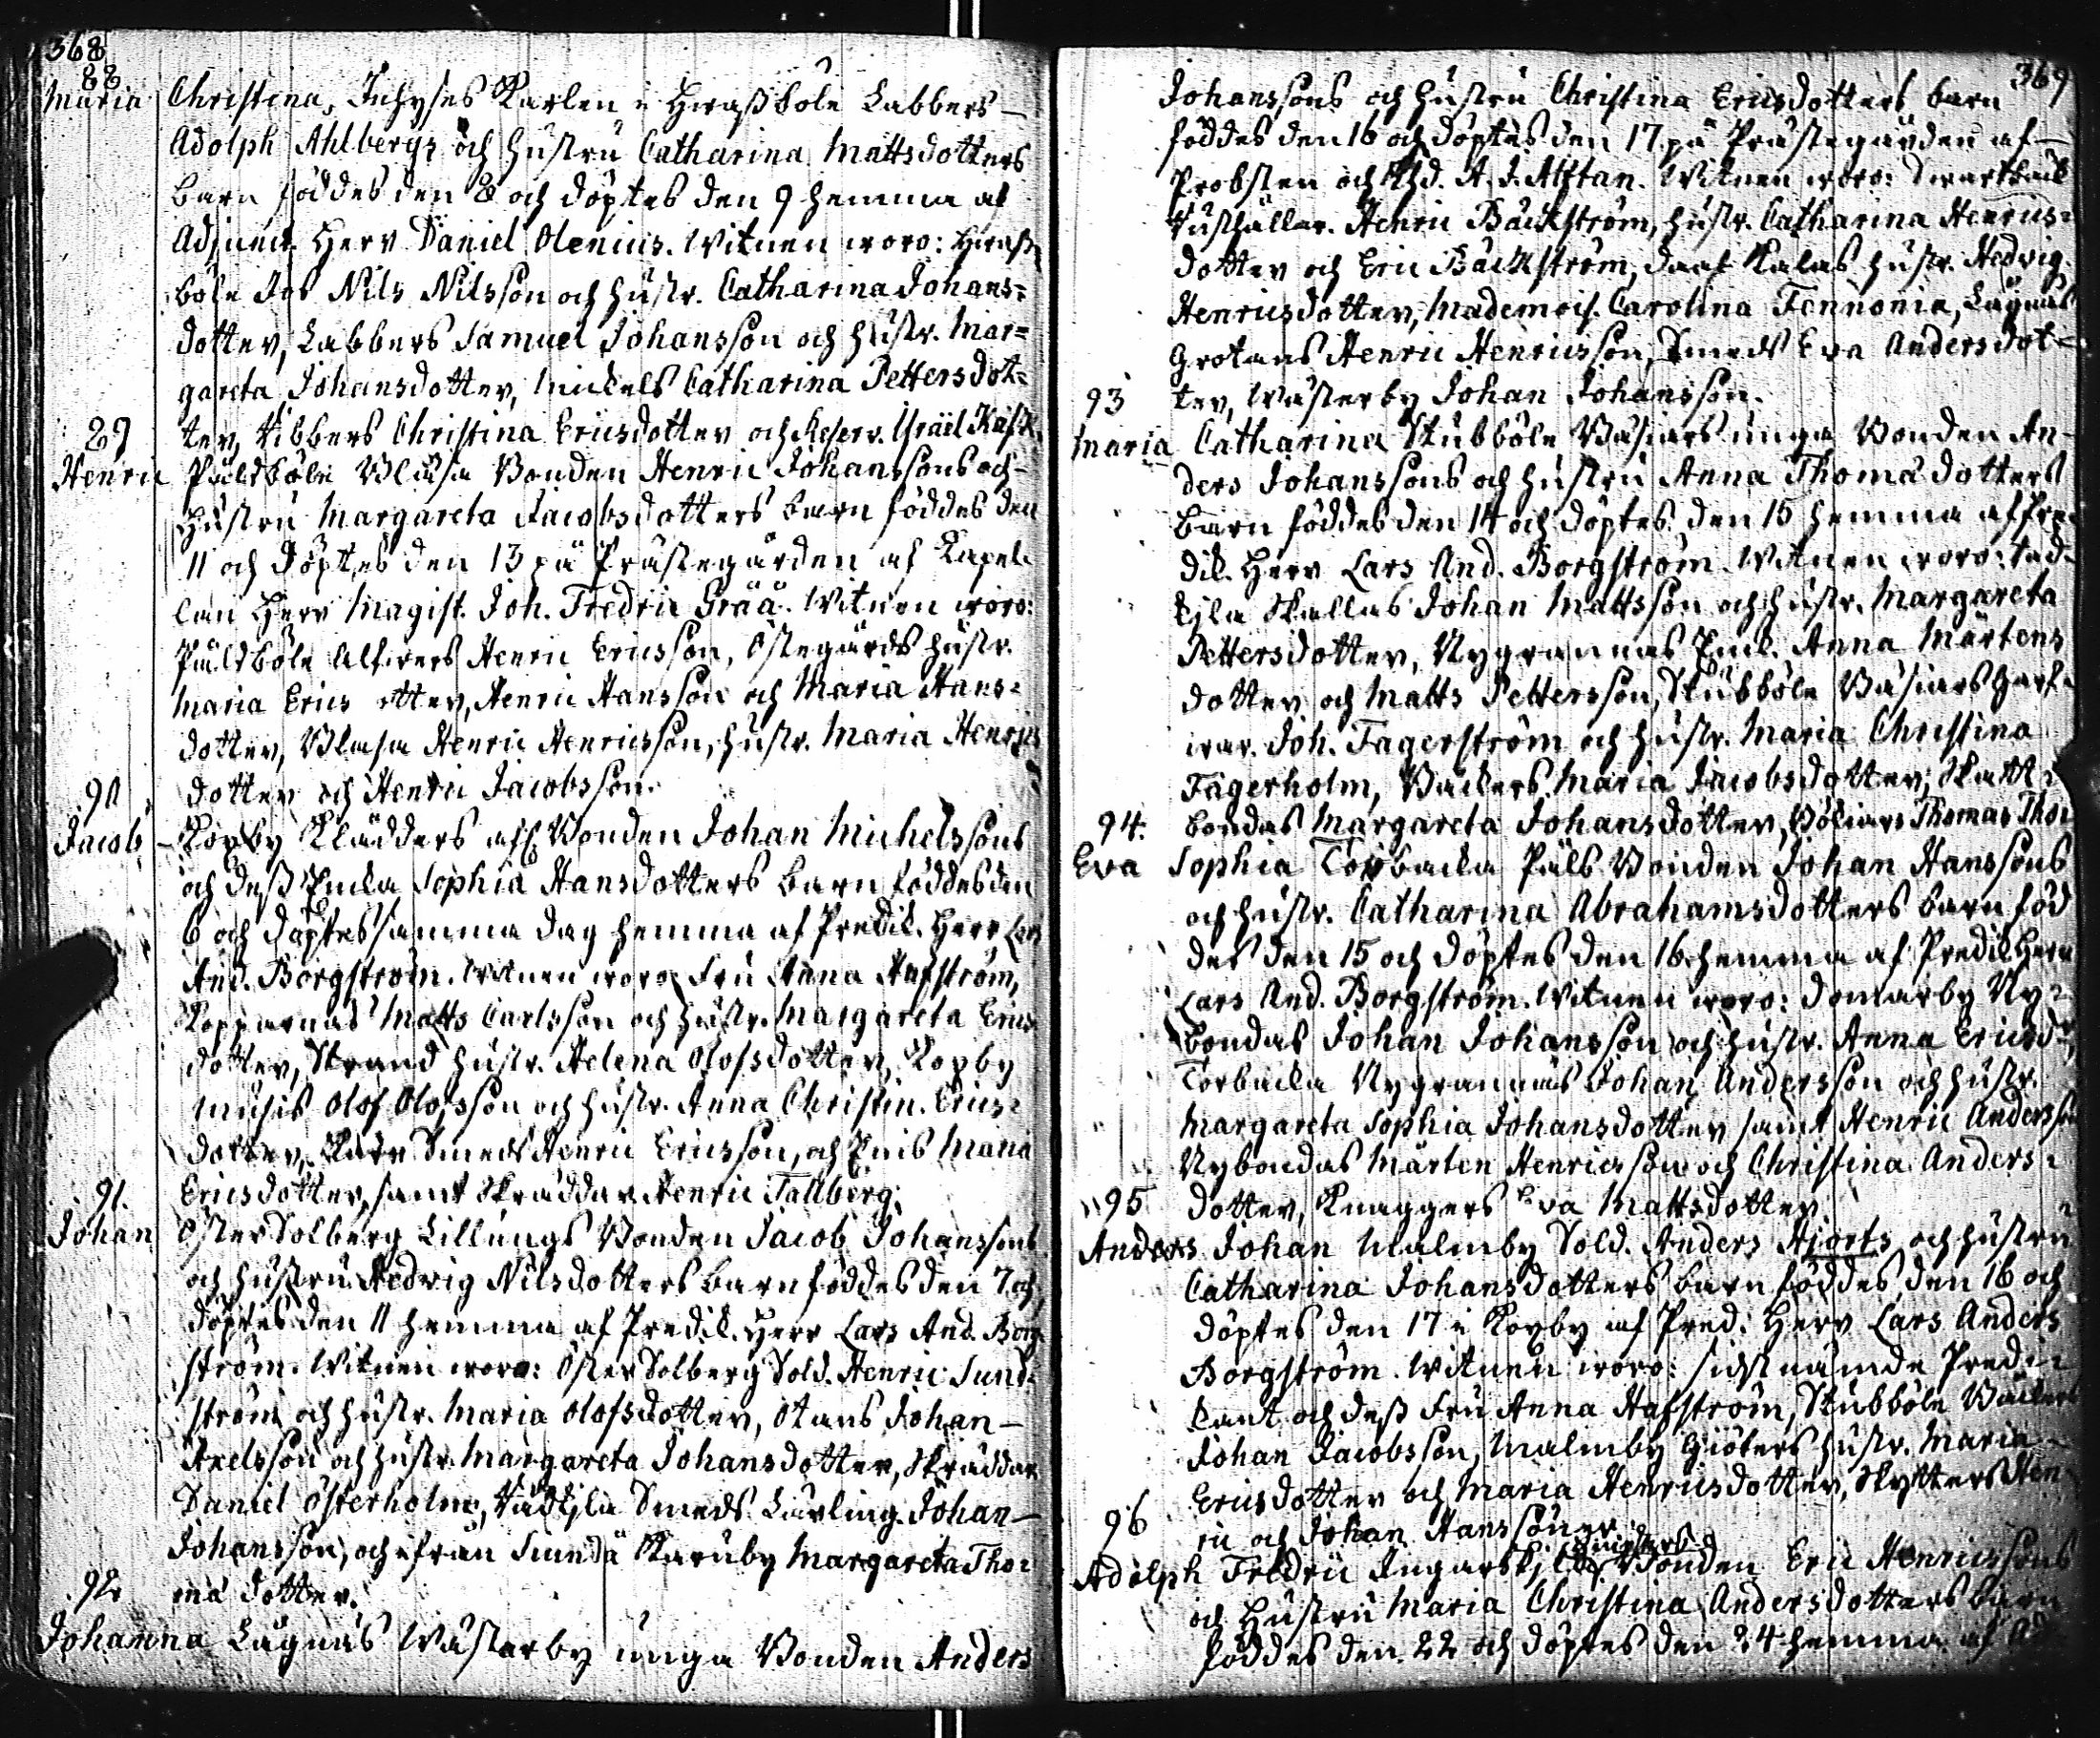 368
88
Maria Christina, Inhyses Karlen i Hwaßböle Labbers
Adolph Ahlbergs och hustru Catharina Mattsdotters
barn föddes den 8 och döptes den 9 hemma af
Adjunct. Herr Daniel Olenius. Witnen woro: Hwaß
böle Jos Nils Nilsson och hustr. Catharina Johans=
dotter, Labbers Samuel Johansson och hustr. Mar=
gareta Johansdotter, Mickels Catharina Pettersdot=
ter, Kibbers Christina Ericsdotter och Reserv. Israël
89
Henric Påldböle Blåsa Bonden Henric Johanssons och
hustru Margareta Jacobsdotters barn föddes den
11 och döptes den 13 på Prästegården af Kapel-
lan Herr Magist. Joh. Fredric Gråå. Witnen woro:
Påldböle Alfwers Henric Ericsson, Östegårds hustr.
Maria Erics otter, Henric Hansson och Maria Hans=
dotter, Blåsa Henric Henricsson, hustr. Maria Henrics
dotter och Henric Jacobsson.
90
Jacob Koxby Klädders afl. Bonden Johan Michelssons
och deß Enka Sophia Hansdotters barn föddes den
6 och döptes samma dag hemma af Predik. Herr Lars
And. Borgström. Witnen woro Fru Anna Hafström,
Kopparnäs Matts Carlsson och hustr. Margareta Erics
dotter, Strand hustr. Helena Olofsdotter, Koxby
Musis Olof Olofsson och hustr. Anna Christin. Erics=
dotter, Smeds Henric Ericsson, och Maria
Ericsdotter, samt Skräddar Henric Tallberg.
91.
Johan Öster Solberg Lillungs Bonden Jacob Johanssons
och hustru Hedwig Nilsdotters barn föddes den 7 och
döptes den 11 hemma af Predik. Herr Lars And. Borg
ström. Witnen woro: Öster Solberg Sold. Henric Sund=
ström och hustr. Maria Olofsdotter, Otans Johan
Axelsson och hustr. Margareta Johansdotter, Skräddar
Daniel Österholm, Wädkjla Smeds Lärling Johan
Johansson, och ifrån Siundå Karuby Margareta Tho=
mä dotter.
92
Johanna Lågnäs Wästerby unga Bonden Anders
369
Johanssons och hustru Christina Ericsdotters barn
föddes den 16 och döptes den 17 på Prästegården af
Probsten och Khd. A. J. Alftan. Witnen woro: Swartbäck
Rusthållar. Henric Bäckström, hustr. Catharina Henrics=
dotter och Eric Bäckström, hustr. Hedvig
Henricsdotter, Mademois. Carolina Fennonia, Lågnäs
Grotans Henric Henricsson, Smeds Eva Andersdot=
ter, Wästerby Johan Johansson.
93
Maria Catharina Stubböle Wäsiars unga Bonden An-
ders Johanssons och hustru Anna Thomä dotters
barn föddes den 14 och döptes den 15 hemma af Pre
dik. Herr Lars And. Borgström. Witnen woro: Wäd-
kjla Skallas Johan Mattsson och hustr. Margareta
Pettersdotter, Nygrannas Enk. Anna Mårtens
dotter och Matts Pettersson, Stubböle Wäsiars Garf-
war. Joh. Fagerström och hustr. Maria Christina
Fagerholm, Backers Maria Jacobsdotter, Skatt=
bondas Margareta Johansdotter, Böliars Thomas Tho=
94.
Eva Sophia Torbacka Påls Bonden Johan Hanssons
och hustr. Catharina Abrahamsdotters barn föd
des den 15 och döptes den 16 hemma af Predik. Herr
Lars And. Borgström. Witnen woro: Domarby Ny=
bondas Johan Johansson och hustr. Anna Ericsdr,
Torbacka Nygrannas Johan Andersson och hustr.
Margareta Sophia Johansdotter samt Henric Andersson
Nybondas Mårten Henricsson och Christina Anders=
dotter, Knaggers Eva Mattsdotter
95
Anders Johan Malmby Sold. Anders Hjorts och hustru
Catharina Johansdotters barn föddes den 16 och
döptes den 17 i Koxby af Pred. Herr Lars Anders
Borgström. Witnen woro: sidstnämde Predi=
kant och deß Fru Anna Hafström, Stubböle Backers
Johan Jacobsson, Malmby Giöters hustr. Maria
Ericsdotter och Maria Henricsdotter, Skytters Hen
ric och Johan Hanssöner.
96
Adolph Fredric Ingarskjla Bonden Eric Henricssons
och Hustru Maria Christina Andersdotters barn
föddes den 22 och döptes den 24 hemma af Ad